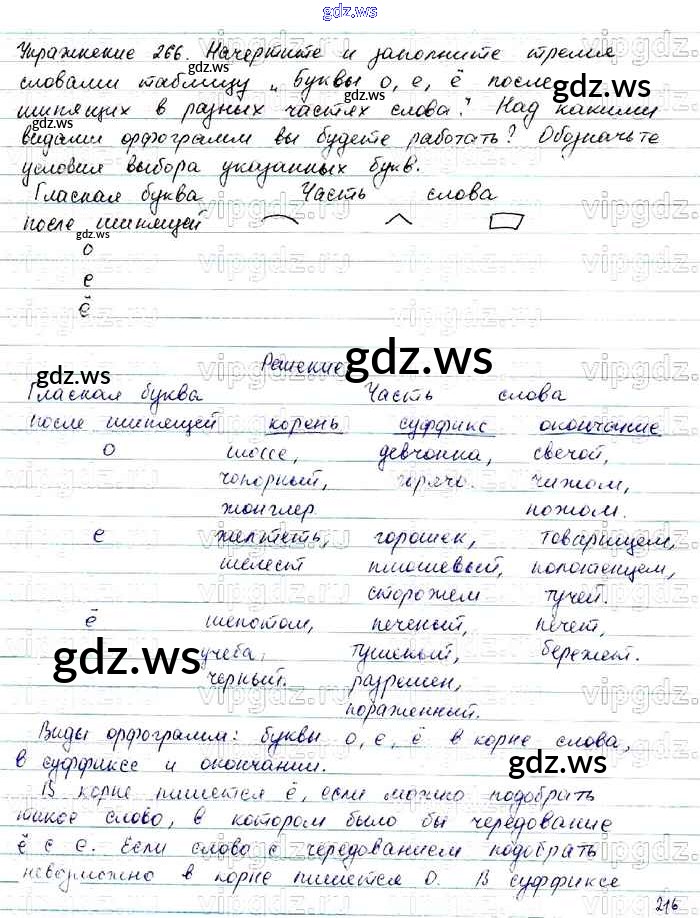 gdz.ws
Упражнение 266. Начертите и заполните тремя
словами таблицу „Буквы о, е, ё после
шипящих в разных частях слова." Над какими
видами орфограмм вы будете работать? Обозначьте
условия выбора указанных букв.
Гласная буква Часть слова
после шипящей
о
е
ё
Решение
Гласная буква Часть слова
после шипящей корень суффикс окончание
о шоссе, девчонка, свечой,
чопорный, горячо. чижом,
жонглер ножом.
е желтеть, горошек, товарищем,
шелест плюшевый, полотенцем,
сторожем тучей.
ё шепотом, печеный, печет,
учеба, тушеный, бережет.
черный. разрешен,
пораженный.
Виды орфограмм: буквы о, е, ё в корне слова,
в суффиксе и окончании.
В корне пишется ё, если можно подобрать
такое слово, в котором было бы чередование
ё с е. Если слово с чередованием подобрать
невозможно в корне пишется о. В суффиксе
216